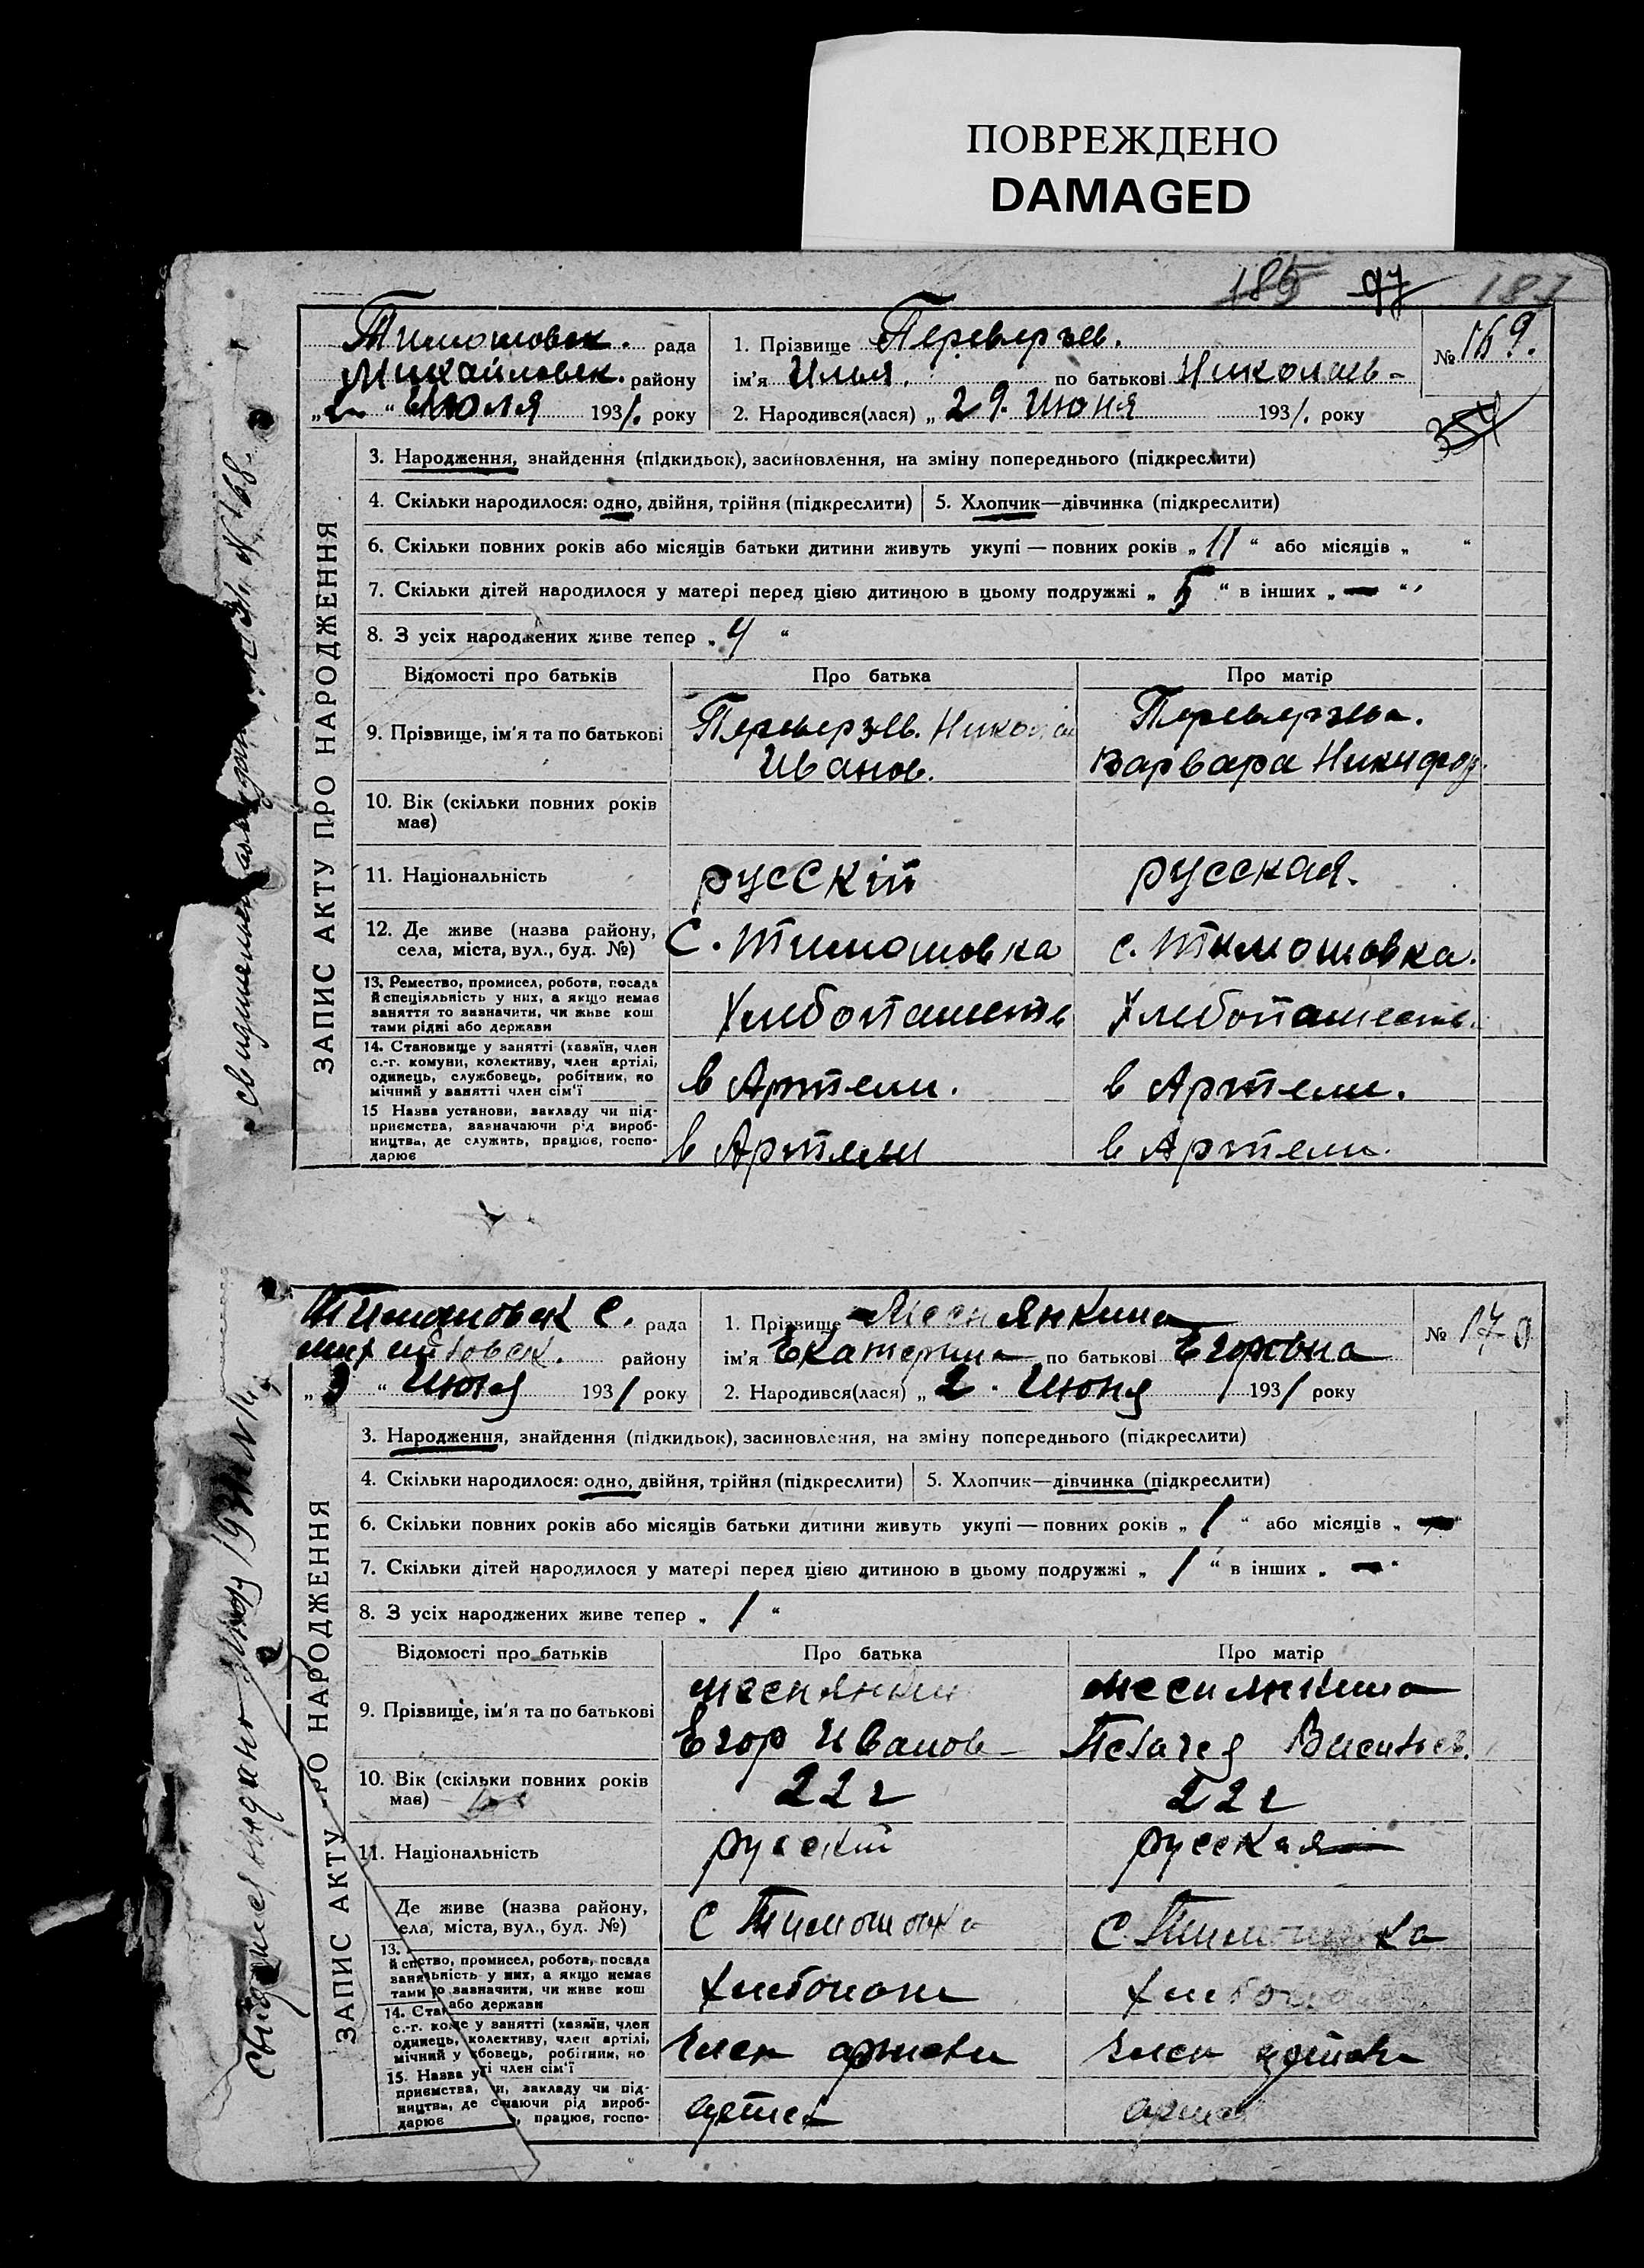 ПОВРЕЖДЕНО
DAMAGED
185 97 187
Тимошовск. рада
Михайловск. району
„2“ Июля 1931. року
1. Прізвище Переверзев.
ім'я Илья. по батькові Николаев-
2. Народився(лася) „29. Июня 1931. року
№ 169.
354
ЗАПИС АКТУ ПРО НАРОДЖЕННЯ
3. Народження, знайдення (підкидьок), засиновлення, на зміну попереднього (підкреслити)
4. Скільки народилося: одно, двійня, трійня (підкреслити)
5. Хлопчик—дівчинка (підкреслити)
6. Скільки повних років або місяців батьки дитини живуть укупі — повних років „11“ або місяців „ “
7. Скільки дітей народилося у матері перед цією дитиною в цьому подружжі „5“ в інших „—“
8. З усіх народжених живе тепер „4“
Відомості про батьків Про батька Про матір
9. Прізвище, ім'я та по батькові
Переверзев. Николай
Иванов.
Переверзева.
Варвара Никифор.
10. Вік (скільки повних років
має)
11. Національність русскій русская.
12. Де живе (назва району,
села, міста, вул., буд. №)
с. Тимошовка с. Тимошовка.
13. Ремество, промисел, робота, посада
й спеціяльність у них, а якщо немає
заняття то зазначити, чи живе кош
тами рідні або держави
Хлебопашеств Хлебопашеств.
14. Становище у занятті (хазяїн, член
с.-г. комуни, колективу, член артілі,
одинець, службовець, робітник, по
мічний у занятті член сім'ї
в Артели. в Артели.
15 Назва установи, закладу чи під-
приємства, зазначаючи рід вироб-
ництва, де служить, працює, госпо-
дарює
в Артели в Артели.
Тимошовск С. рада
району
„3“ Июля 1931 року
1. Прізвище
ім'я Екатерина по батькові Егоровна
2. Народився(лася) „2. Июня 1931 року
№ 170
ЗАПИС АКТУ ПРО НАРОДЖЕННЯ
3. Народження, знайдення (підкидьок), засиновлення, на зміну попереднього (підкреслити)
4. Скільки народилося: одно, двійня, трійня (підкреслити)
5. Хлопчик—дівчинка (підкреслити)
6. Скільки повних років або місяців батьки дитини живуть укупі — повних років „1“ або місяців „—“
7. Скільки дітей народилося у матері перед цією дитиною в цьому подружжі „1“ в інших „—“
8. З усіх народжених живе тепер „1“
Відомості про батьків Про батька Про матір
9. Прізвище, ім'я та по батькові
Егор Иванов-
Пелагея Васильев.
10. Вік (скільки повних років
має)
22 г 22 г
11. Національність русскій русская
Де живе (назва району,
ела, міста, вул., буд. №)
С Тимошовка С. Тимошовка
13.
й спство, промисел, робота, посада
заняльність у них, а якщо немає
тами ю зазначити, чи живе кош
або держави
хлебопаш
14. Стан
с.-г. коме у занятті (хазяїн, член
одинець, колективу, член артілі,
мічний у жбовець, робітник, по
ті член сім'ї
член артели член артели
15. Назва ус
приємства, ви, закладу чи під-
ництва, де сначаючи рід вироб-
дарює , працює, госпо-